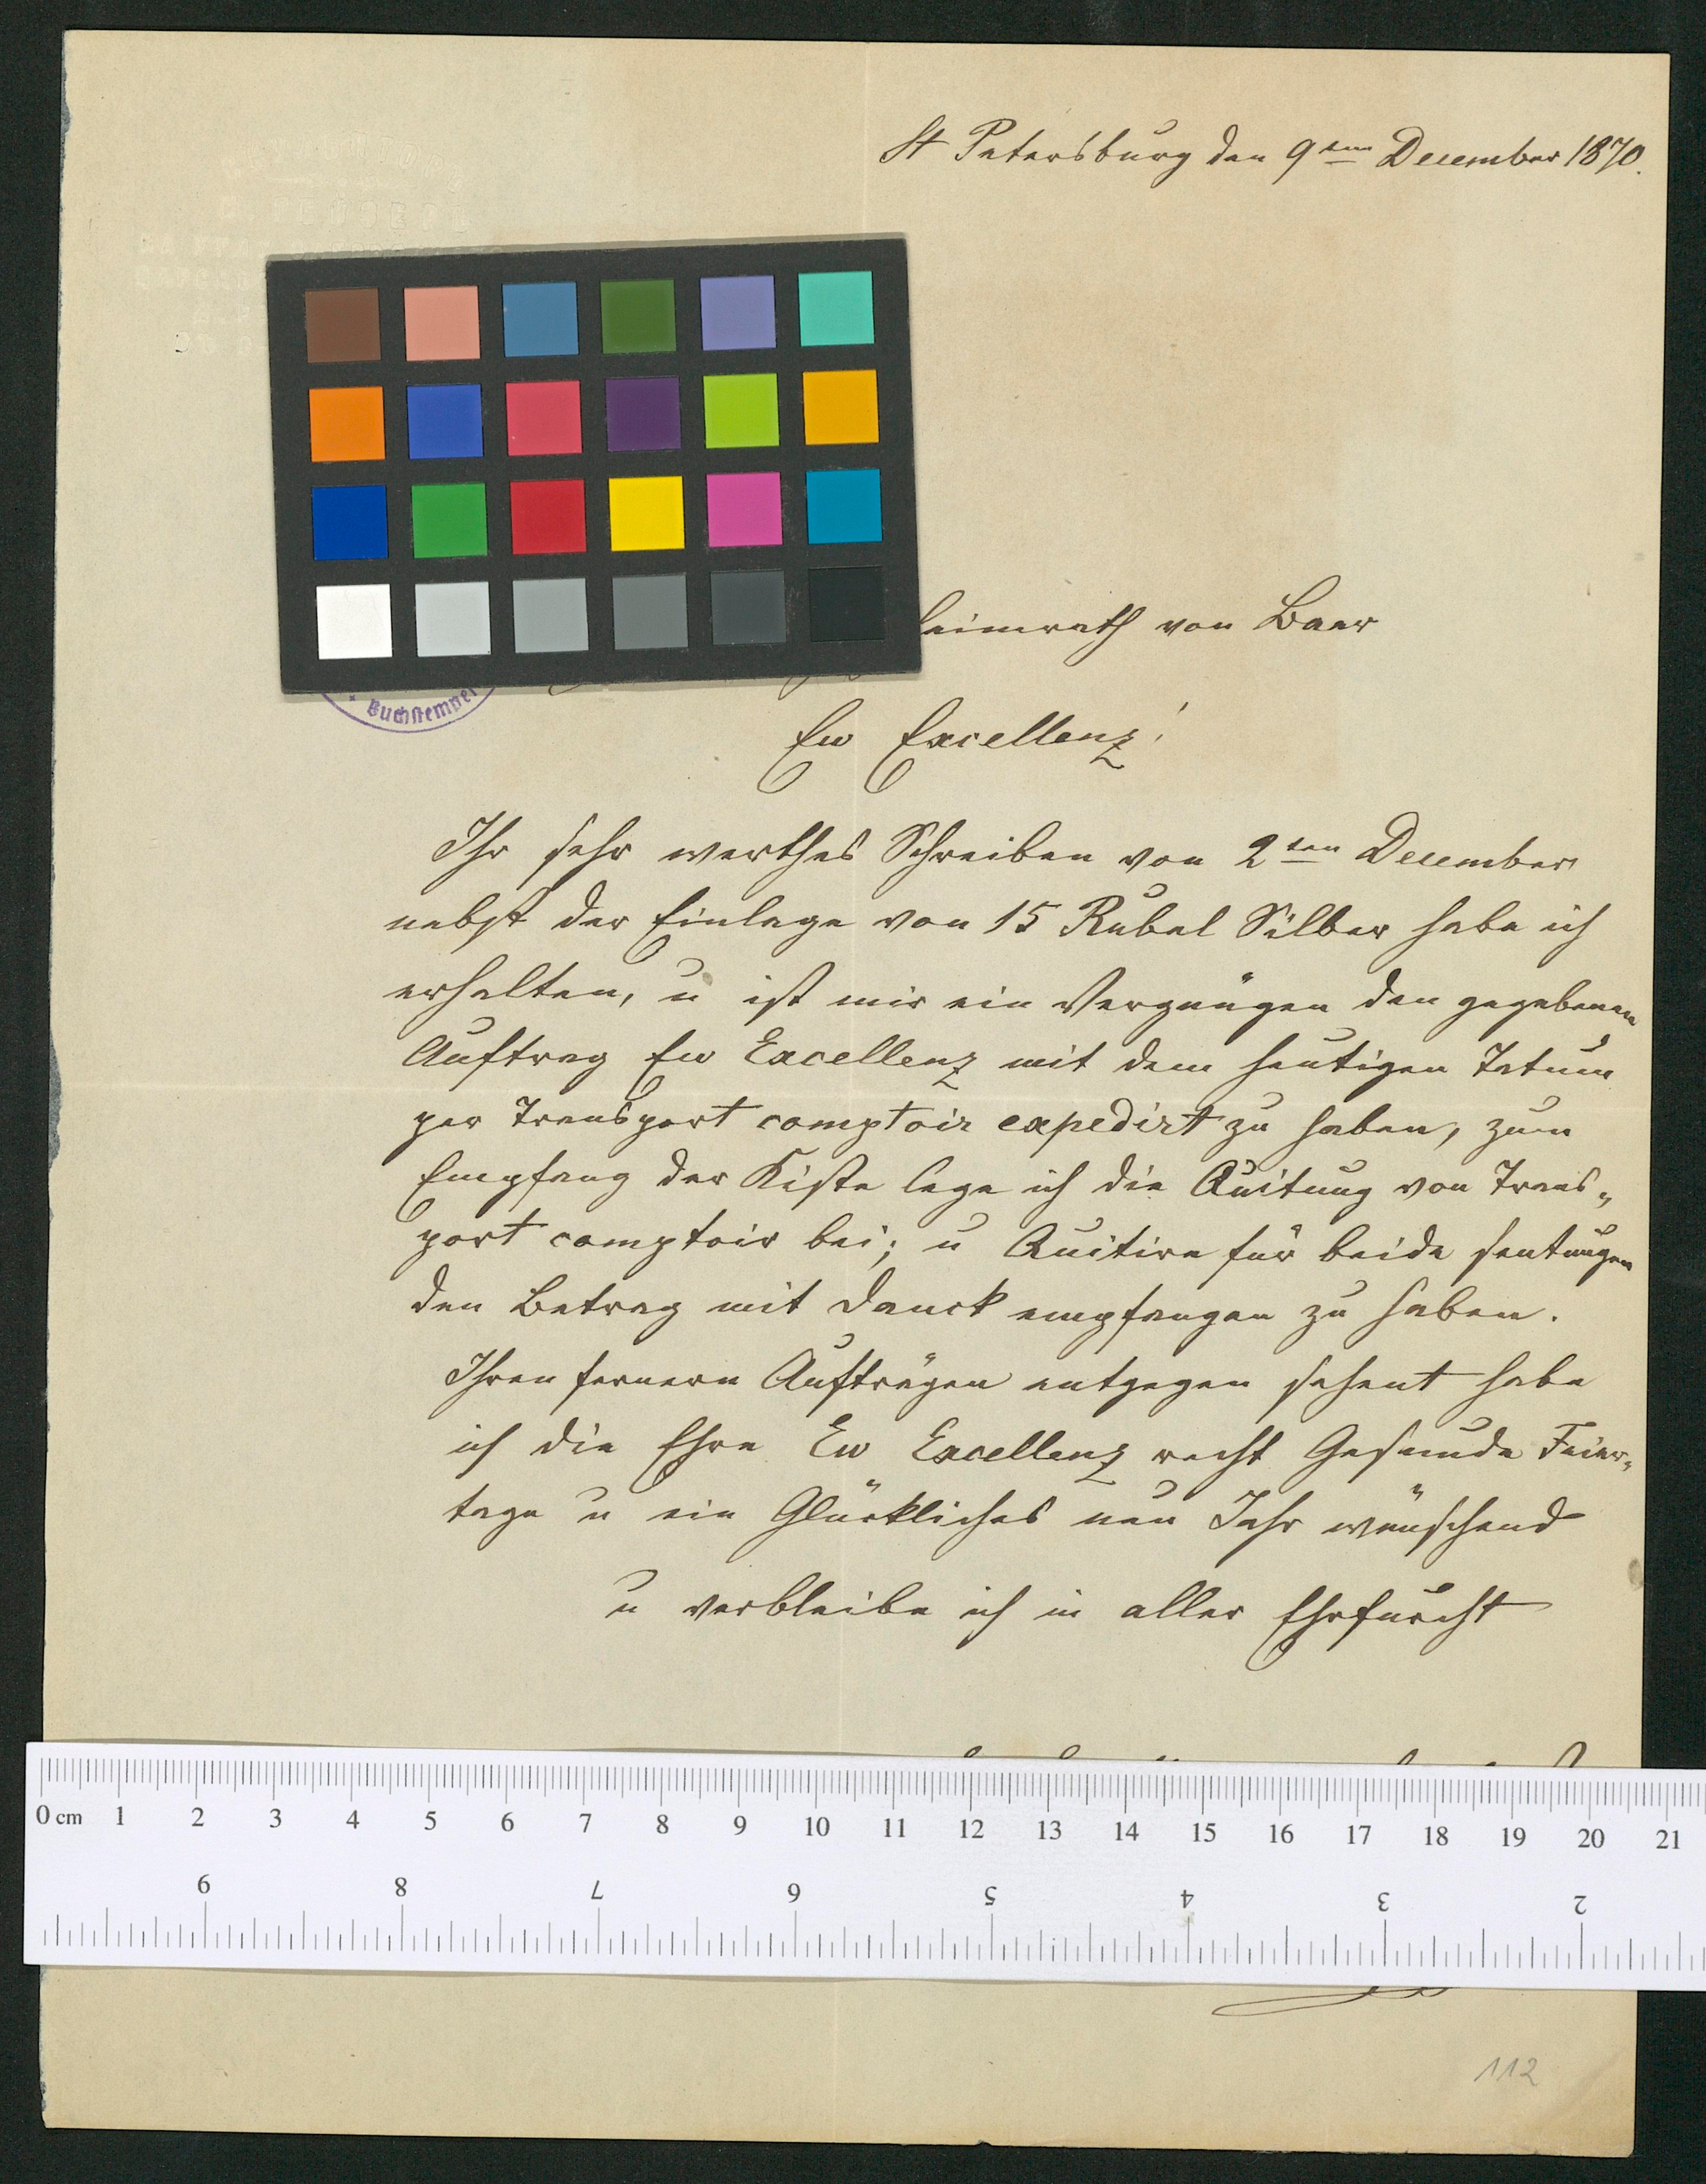 St Petersburg den 9ten December 1870.
heimrath von Baer
Buchstempel
Ew Excellenz!
Ihr sehr werthes Schreiben von 2ten December
nebst der Einlage von 15 Rubel Silber habe ich
erhalten, u ist mir ein Vergnügen den gegebenen
Auftrag Ew Excellenz mit dem heutigen Tatum
per Transport comptoir expedirt zu haben, zum
Empfang der Kiste lege ich die Quitung von Trans„
port comptoir bei; u Quitire für beide sentungen
den Betrag mit Danck empfangen zu haben.
Ihren fernern Aufträgen entgegen sehent habe
ich die Ehre Ew Excellenz recht Gesunde Feier„
tage u ein Glückliches neu Jahr wünschend
u verbleibe ich in aller Ehrfurcht
0 cm 1 2 3 4 5 6 7 8 9 10 11 12 13 14 15 16 17 18 19 20 21
9 8 7 6 5 4 3 2
112